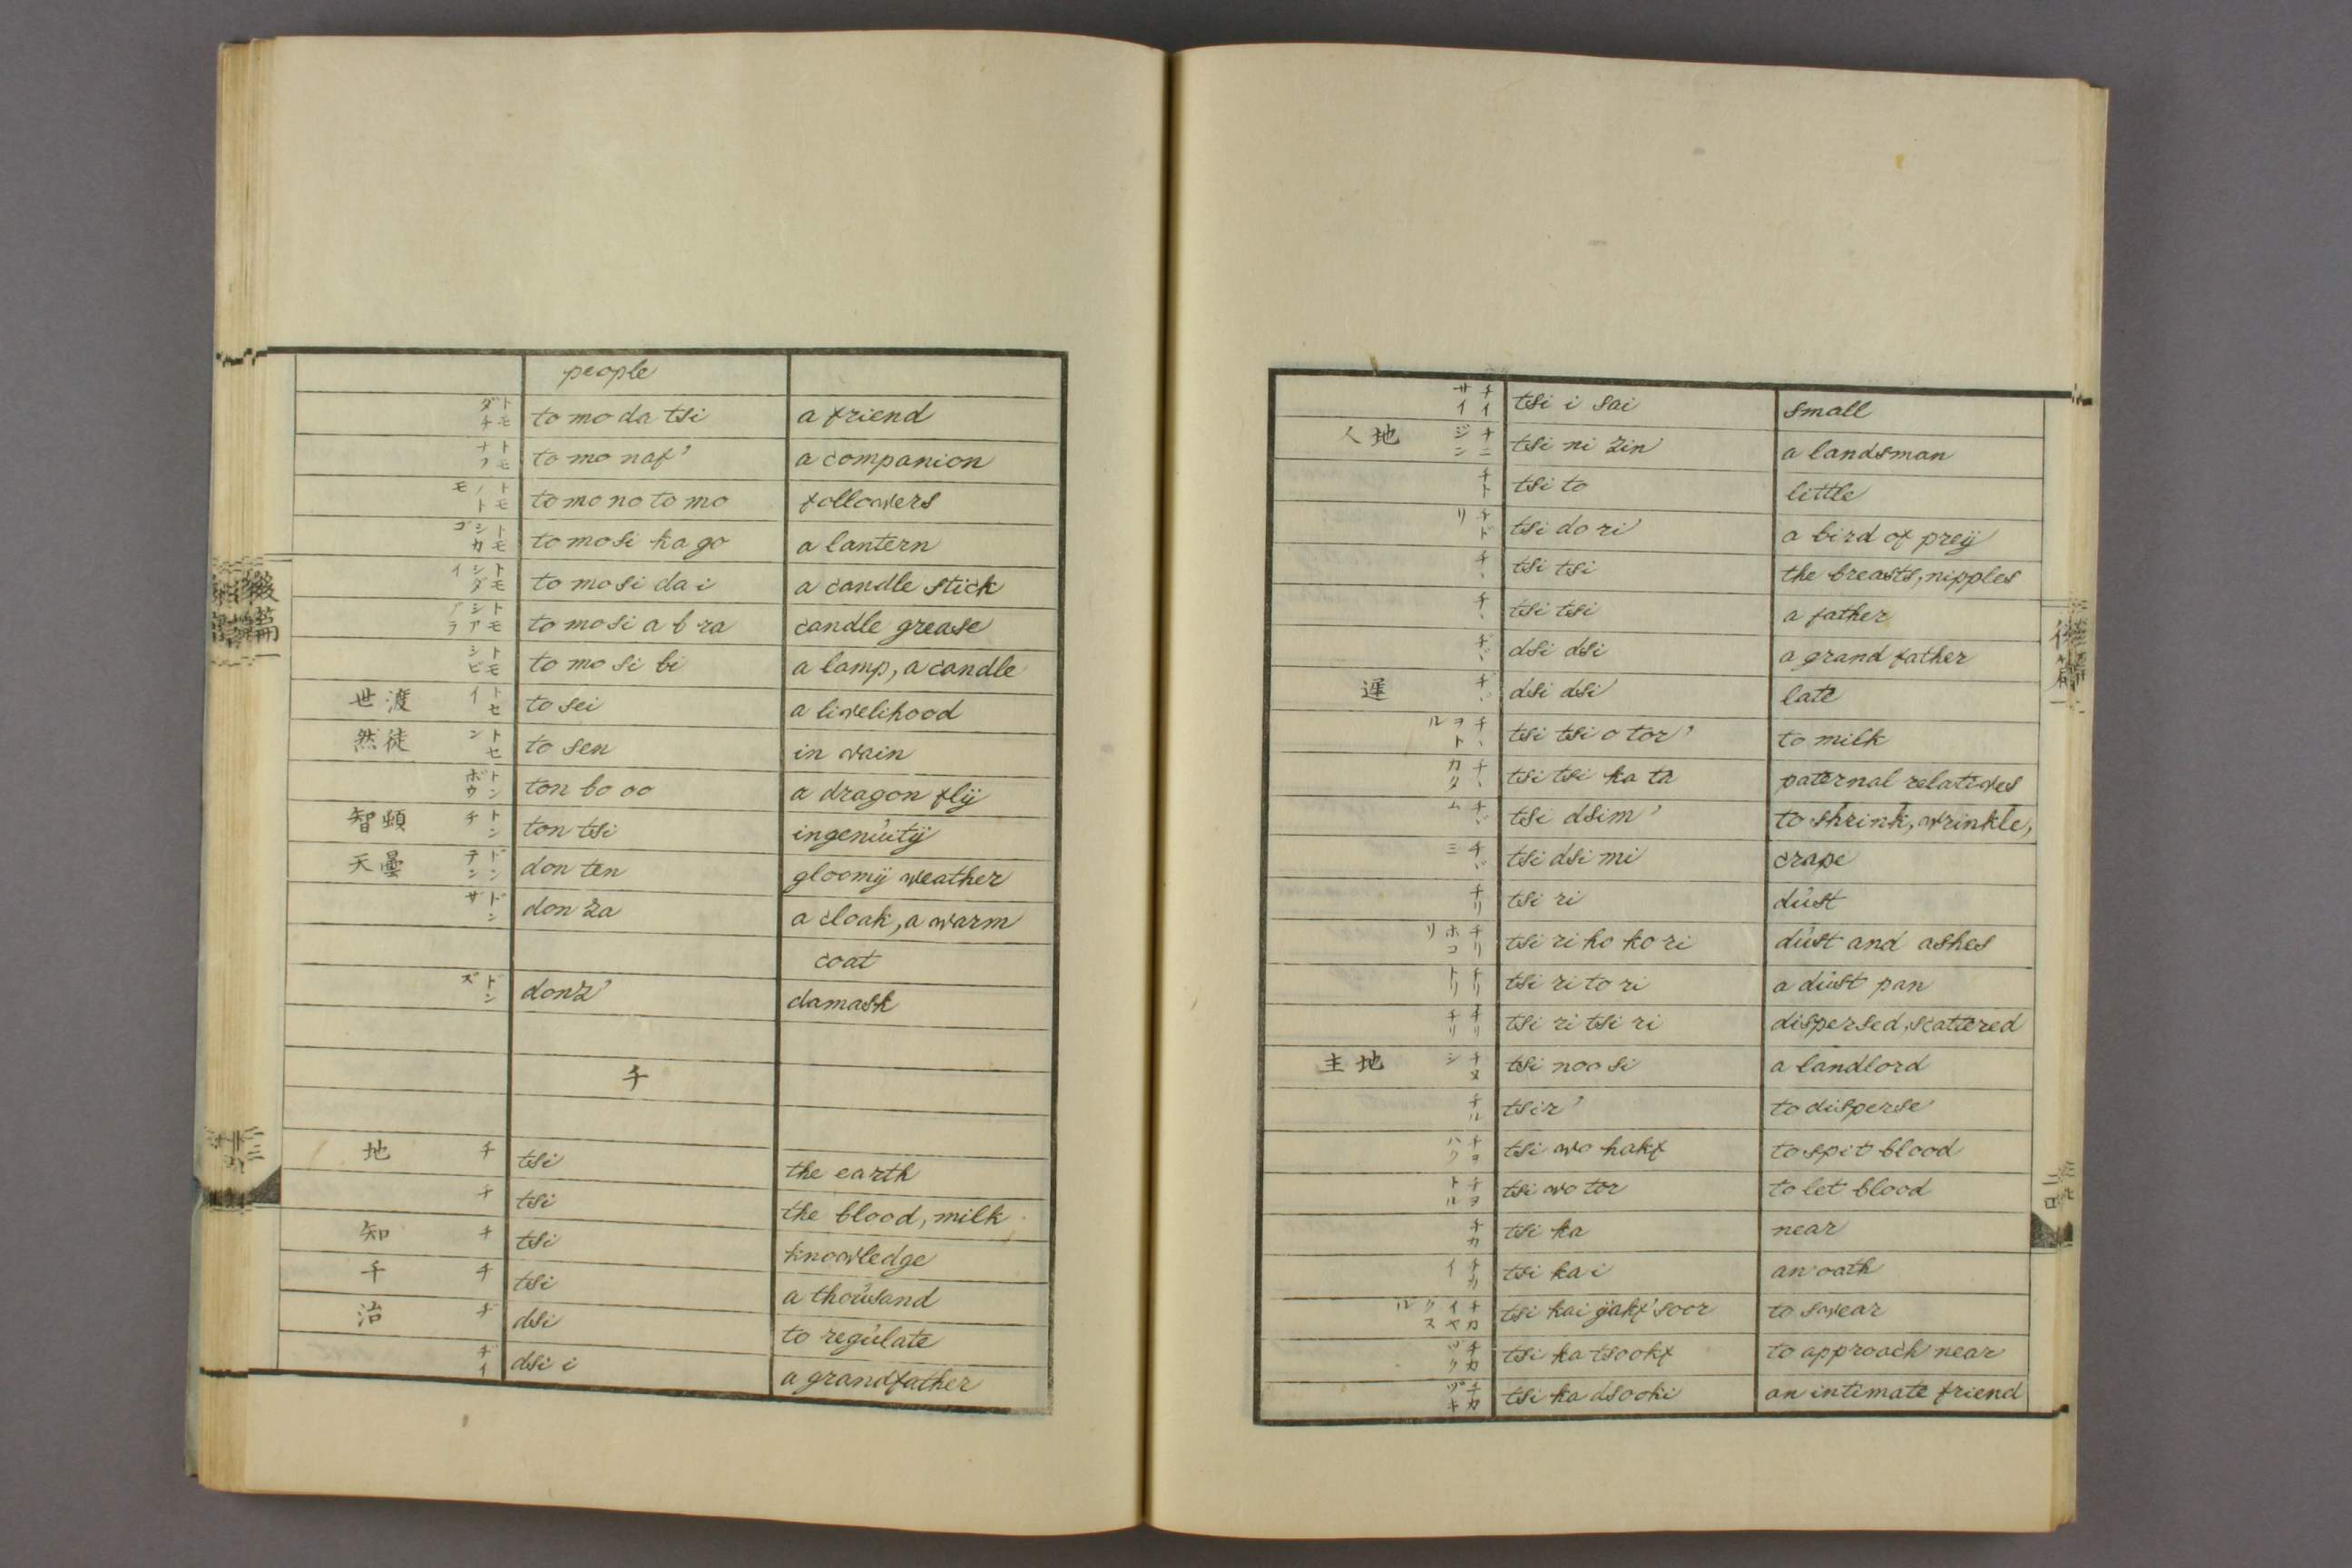 people
トモダチ to mo da tsi a friend
トモナフ to mo naf' a companion
トモノトモ to mo no to mo followers
トモシカゴ to mo si ka go a lantern
トモシダイ to mo si da i a candle stick
トモシアブラ to mo si a b ra candle grease
トモシビ to mo si bi a lamp, a candle
世渡 トセイ to sei a livelihood
然徒 トセン to sen in vain
トンボウ ton bo oo a dragon flÿ
智頓 トンチ ton tsi ingenúitÿ
天曇 ドンテン don ten gloomÿ weather
ドンザ don za a cloak, a warm
coat
ドンズ donz' damask
チ
地 チ tsi the earth
チ tsi the blood, milk
知 チ tsi knowledge
千 チ tsi a thoúsand
治 ヂ dsi to regúlate
ヂイ dsi i a grandfather
後篇
チイサイ tsi i sai small
人地 チニジン tsi ni zin a landsman
チト tsi to little
チドリ tsi do ri a bird of preÿ
チヽ tsi tsi the breasts, nipples
チヽ tsi tsi a father
ヂヾ dsi dsi a grand father
遲 ヂヾ dsi dsi late
チヽヲトル tsi tsi o tor' to milk
チヽカタ tsi tsi ka ta paternal relatives
チヾム tsi dsim' to shrink, wrinkle,
チヾミ tsi dsi mi crape
チリ tsi ri dúst
チリホコリ tsi ri ho ko ri dúst and ashes
チリトリ tsi ri to ri a dúst pan
チリチリ tsi ri tsi ri dispersed, scattered
主地 チヌシ tsi noo si a landlord
チル tsir' to disperse
チヲハク tsi wo hakf to spit blood
チヲトル tsi wo tor to let blood
チカ tsi ka near
チカイ tsi ka i an oath
チカイヤクスル tsi kai ÿakf' soor to swear
チカヅク tsi ka tsookf to approach near
チカヅキ tsi ka dsooki an intimate friend